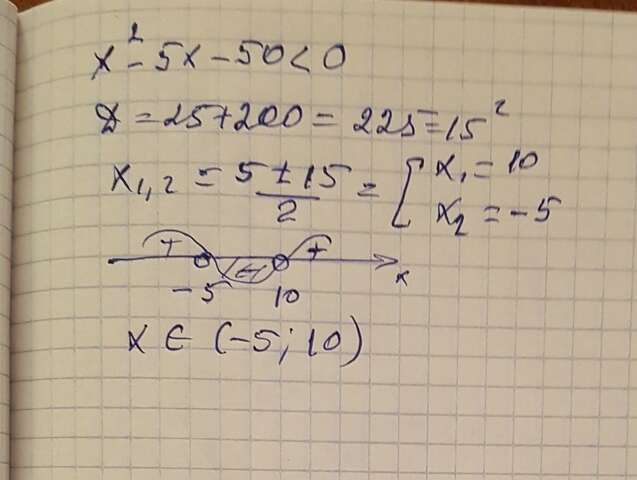 x² - 5x - 50 < 0
D = 25 + 200 = 225 = 15²
x₁,₂ = (5 ± 15)/2 = [ x₁ = 10
x₂ = -5
+ - +
-5 10 x
x ∈ (-5; 10)